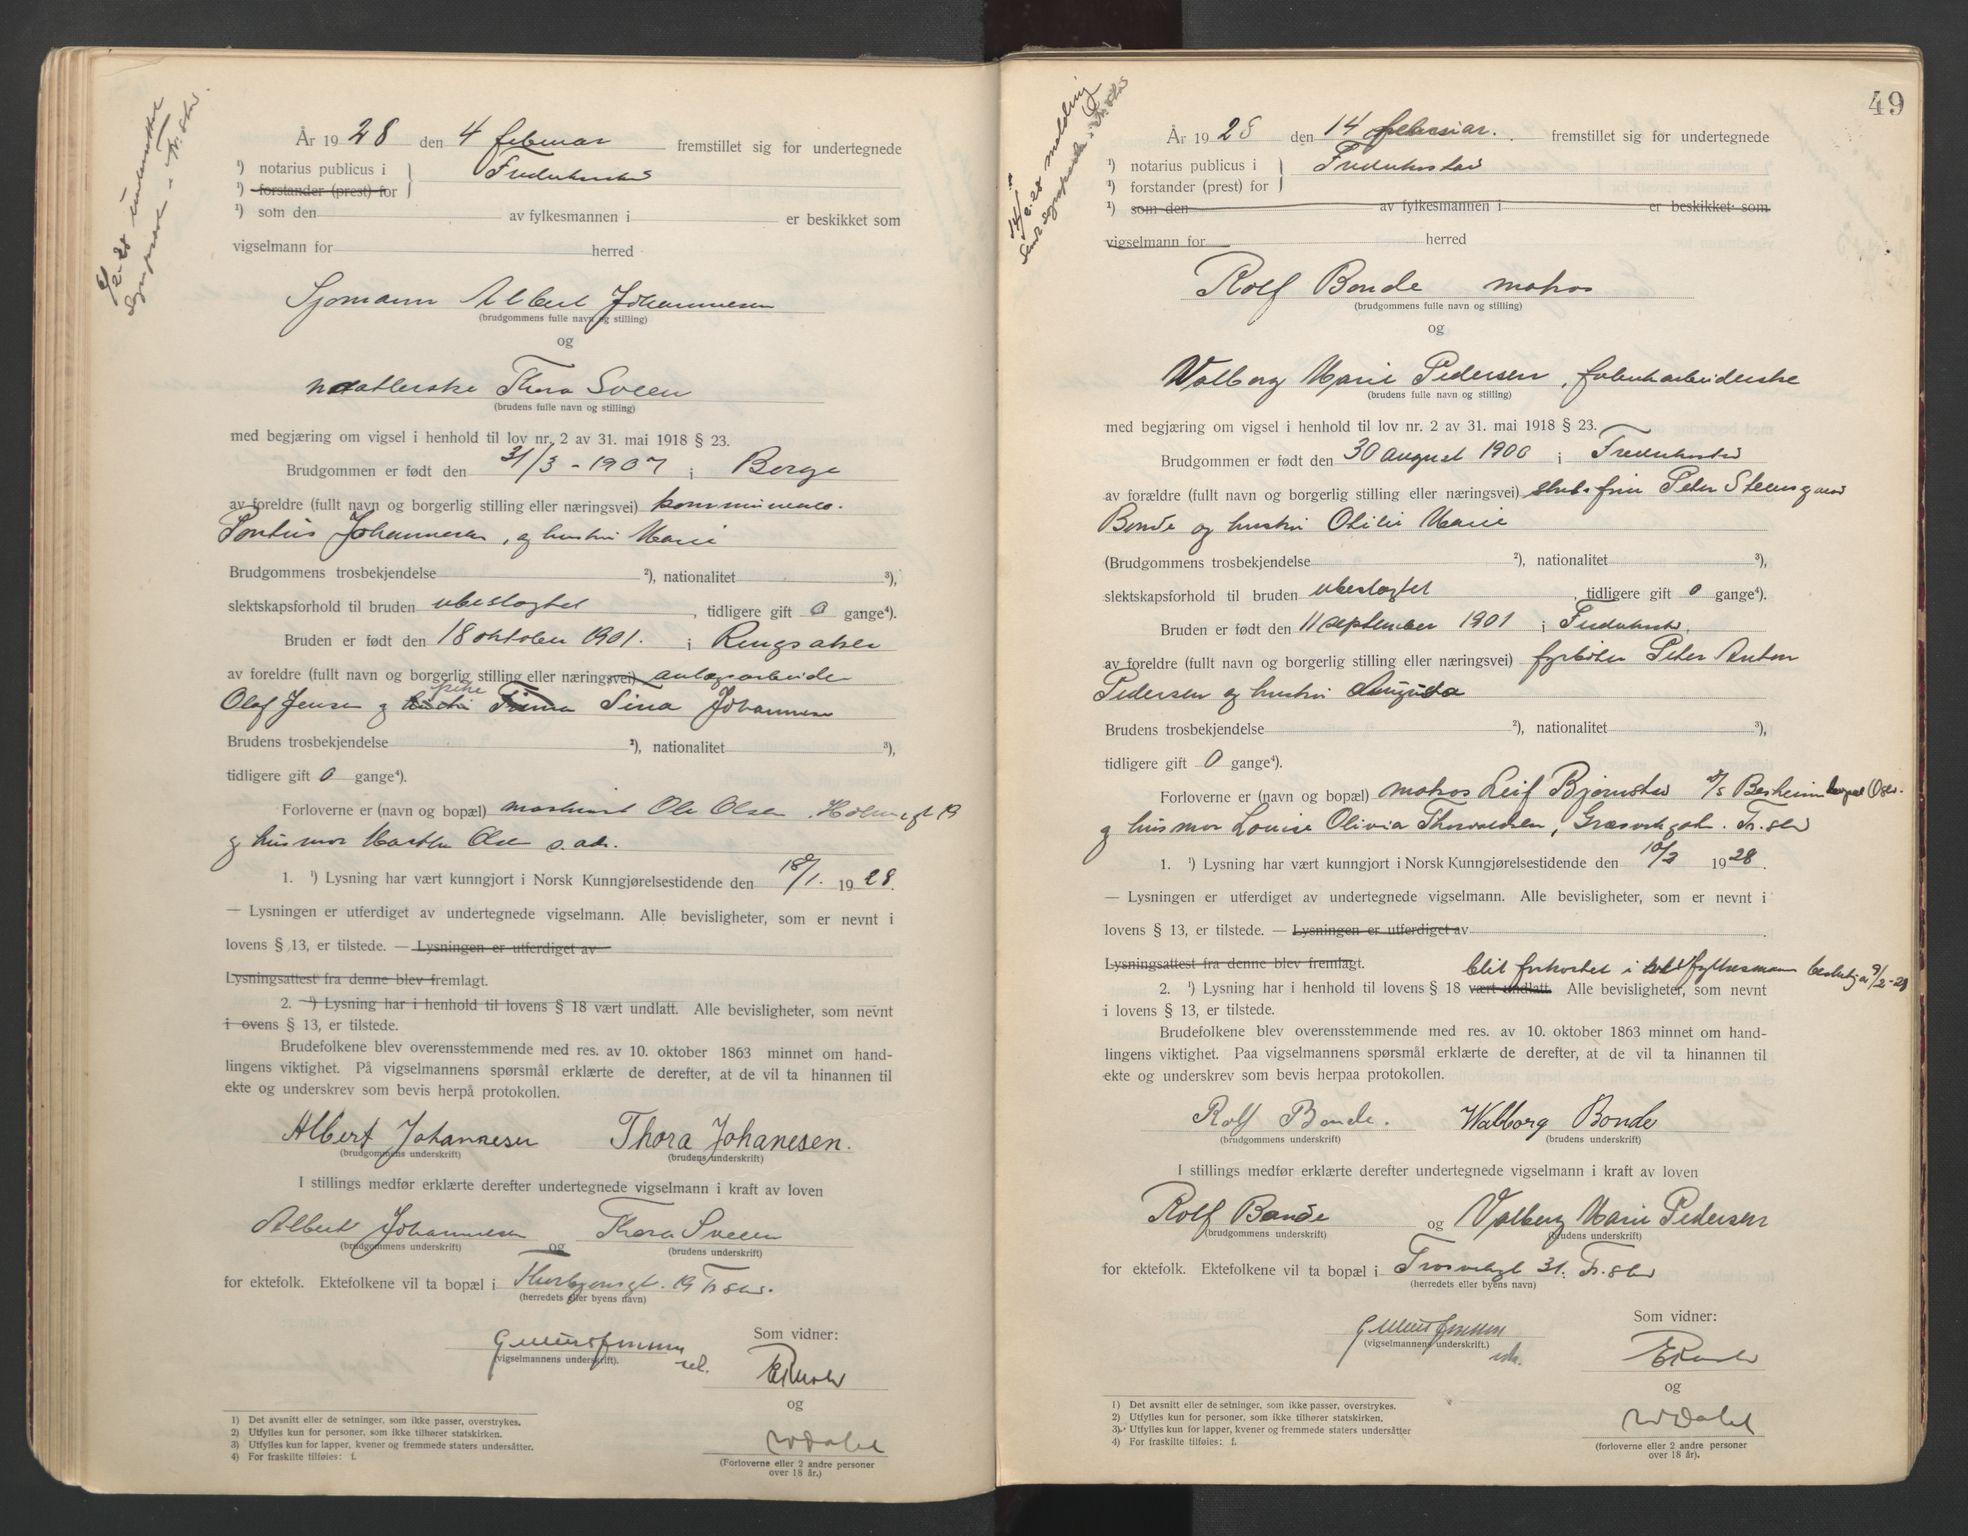 4/2-28 underrettet
sogneprest i Fr.stad
År 1928 den 4 februar fremstillet sig for undertegnede
¹) notarius publicus i Fredrikstad
¹) forstander (prest) for
¹) som den av fylkesmannen i er beskikket som
vigselmann for herred
Sjømann Albert Johannesen
(brudgommens fulle navn og stilling)
og
Thora Sveen
(brudens fulle navn og stilling)
med begjæring om vigsel i henhold til lov nr. 2 av 31. mai 1918 § 23.
Brudgommen er født den 31/3-1907 i Borge
av foreldre (fullt navn og borgerlig stilling eller næringsvei)
Pontus Johannesen, og hustru Marie
Brudgommens trosbekjendelse ²), nationalitet ³),
slektskapsforhold til bruden ubeslogtet, tidligere gift 0 gange⁴).
Bruden er født den 18 oktober 1901. i Ringsaker
av foreldre (fullt navn og borgerlig stilling eller næringsvei) anlægsarbeider
Olaf Jensen og pike Sina Johannesen
Brudens trosbekjendelse ²), nationalitet ³),
tidligere gift 0 gange⁴).
Forloverne er (navn og bopæl) maskinist Ole Olsen, 19
og husmor Marthe Olsen s.adr.
1. ¹) Lysning har vært kunngjort i Norsk Kunngjørelsestidende den 18/1. 1928.
— Lysningen er utferdiget av undertegnede vigselmann. Alle bevisligheter, som er nevnt i
lovens § 13, er tilstede. — Lysningen er utferdiget av
Lysningsattest fra denne blev fremlagt.
2. ¹) Lysning har i henhold til lovens § 18 vært undlatt. Alle bevisligheter, som nevnt
i ovens § 13, er tilstede.
Brudefolkene blev overensstemmende med res. av 10. oktober 1863 minnet om hand-
lingens viktighet. På vigselmannens spørsmål erklærte de derefter, at de vil ta hinannen til
ekte og underskrev som bevis herpå protokollen.
Albert Johannesen Thora Johanesen.
(brudgommens underskrift) (brudens underskrift)
I stillings medfør erklærte derefter undertegnede vigselmann i kraft av loven
Albert Johannesen og Thora Sveen
(brudgommens underskrift) (brudens underskrift)
for ektefolk. Ektefolkene vil ta bopæl i 19 Fr.stad.
(herredets eller byens navn)
Som vidner:
(vigselmannens underskrift).
og
(Forloverne eller 2 andre personer
over 18 år.)
1) Det avsnitt eller de setninger, som ikke passer, overstrykes.
2) Utfylles kun for personer, som ikke tilhører statskirken.
3) Utfylles kun for lapper, kvener og fremmede staters undersåtter.
4) For fraskilte tilføies: f.
49
14/2-28 melding
sendt sogneprest i Fr.stad
År 1928 den 14 februar. fremstillet sig for undertegnede
¹) notarius publicus i Fredrikstad
¹) forstander (prest) for
¹) som den av fylkesmannen i er beskikket som
vigselmann for herred
Rolf Bonde matros
(brudgommens fulle navn og stilling)
og
Valborg Marie Pedersen, fabrikarbeiderske
(brudens fulle navn og stilling)
med begjæring om vigsel i henhold til lov nr. 2 av 31. mai 1918 § 23.
Brudgommen er født den 30 august 1900 i Fredrikstad
av forældre (fullt navn og borgerlig stilling eller næringsvei) Peter Steensgaard
Bonde og hustru Otilie Marie
(Brudgommens trosbekjendelse ²), nationalitet ³),
slektskapsforhold til bruden ubeslogtet, tidligere gift 0 gange⁴).
Bruden er født den 11 september 1901 i Fredrikstad.
av foreldre (fullt navn og borgerlig stilling eller næringsvei) fyrbøter Peter Anton
Pedersen og hustru Augusta
Brudens trosbekjendelse ²), nationalitet ³),
tidligere gift 0 gange⁴).
Forloverne er (navn og bopæl) matros Leif Bjørnstad D/S Besheim Oslo.
og husmor Louise Olivia Thorvaldsen, Græsvikgat. Fr.stad
1. ¹) Lysning har vært kunngjort i Norsk Kunngjørelsestidende den 10/2 1928.
— Lysningen er utferdiget av undertegnede vigselmann. Alle bevisligheter, som er nevnt i
lovens § 13, er tilstede. — Lysningen er utferdiget av
Lysningsattest fra denne blev fremlagt.
blit forkortet i fylkesmann 9/2-28
2. ¹) Lysning har i henhold til lovens § 18 vært undlatt. Alle bevisligheter, som nevnt
i lovens § 13, er tilstede.
Brudefolkene blev overensstemmende med res. av 10. oktober 1863 minnet om hand-
lingens viktighet. Paa vigselmannens spørsmål erklærte de derefter, at de vil ta hinannen til
ekte og underskrev som bevis herpaa protokollen.
Rolf Bonde. Walborg Bonde
(brudgommens underskrift) (brudens underskrift)
I stillings medfør erklærte derefter undertegnede vigselmann i kraft av loven
Rolf Bonde og Valborg Marie Pedersen
(brudgommens underskrift) (brudens underskrift)
for ektefolk. Ektefolkene vil ta bopæl i Trosvikgt 31. Fr.stad
(herredets eller byens navn)
Som vidner:
(vigselmannens underskrift.)
og
(forloverne eller 2 andre personer
over 18 år).
1) Det avsnitt eller de setninger, som ikke passer, overstrykes.
2) Utfylles kun for personer, som ikke tilhører statskirken.
3) Utfylles kun for lapper, kvener og fremmede staters undersåtter
4) For fraskilte tilføies: f.